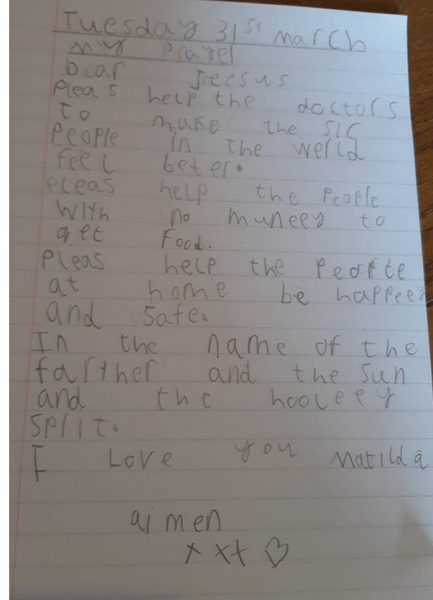 Tuesday 31st March
my prayel
Dear Jeesus
Pleas help the doctors
to make the sic
People in the werld
feel beter.
pleas help the PeoPle
with no muneey to
get Food.
Pleas help the PeoPle
at home be happeey
and safe.
In the name of the
farther and the sun
and the hooleey
split.
I Love you Matilda
aimen
x xx ♡